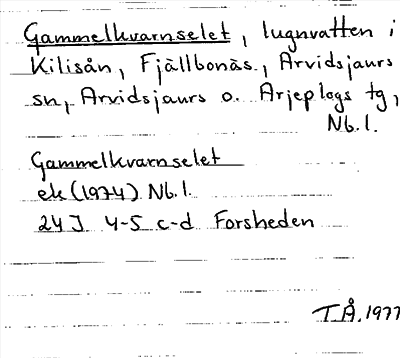 Gammelkvarnselet, lugnvatten i
Kilisån, Fjällbonäs, Arvidsjaurs
sn, Arvidsjaurs o. Arjeplogs tg,
Nb.l.
Gammelkvarnselet
ek (1974) Nb.l.
24J 4-5 c-d Forsheden
T.Å. 1977